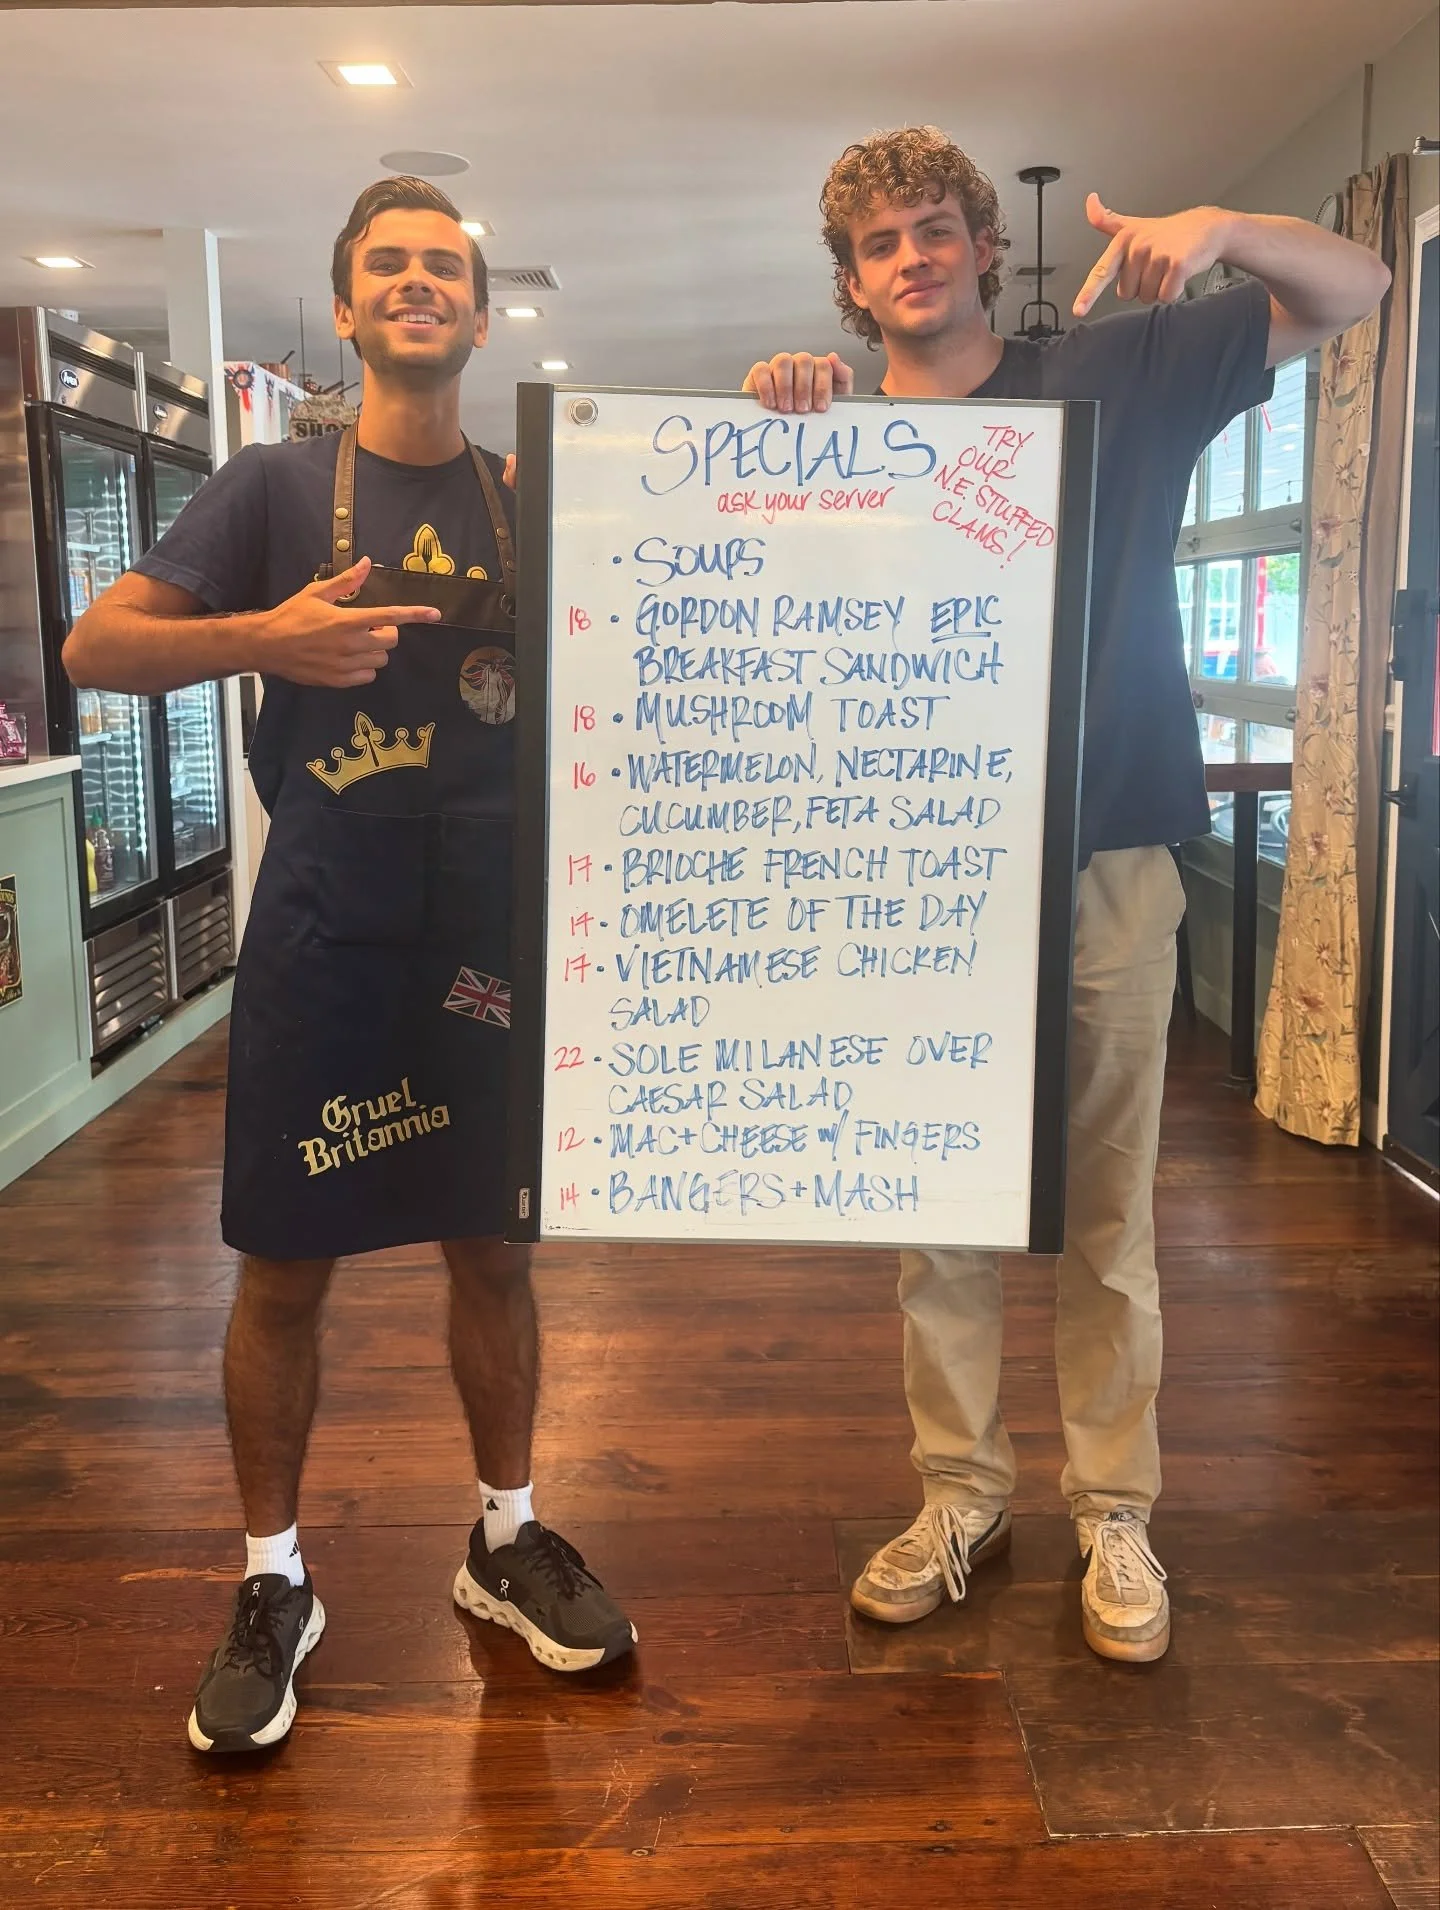 SPECIALS
ask your server
TRY
OUR
N.E. STUFFED
CLAMS!
• SOUPS
18 • GORDON RAMSEY EPIC
BREAKFAST SANDWICH
18 • MUSHROOM TOAST
16 • WATERMELON, NECTARINE,
CUCUMBER, FETA SALAD
17 • BRIOCHE FRENCH TOAST
17 • OMELETE OF THE DAY
17 • VIETNAMESE CHICKEN
SALAD
22 • SOLE MILANESE OVER
CAESAR SALAD
12 • MAC + CHEESE w/ FINGERS
14 • BANGERS + MASH
Gruel
Britannia
NIKE